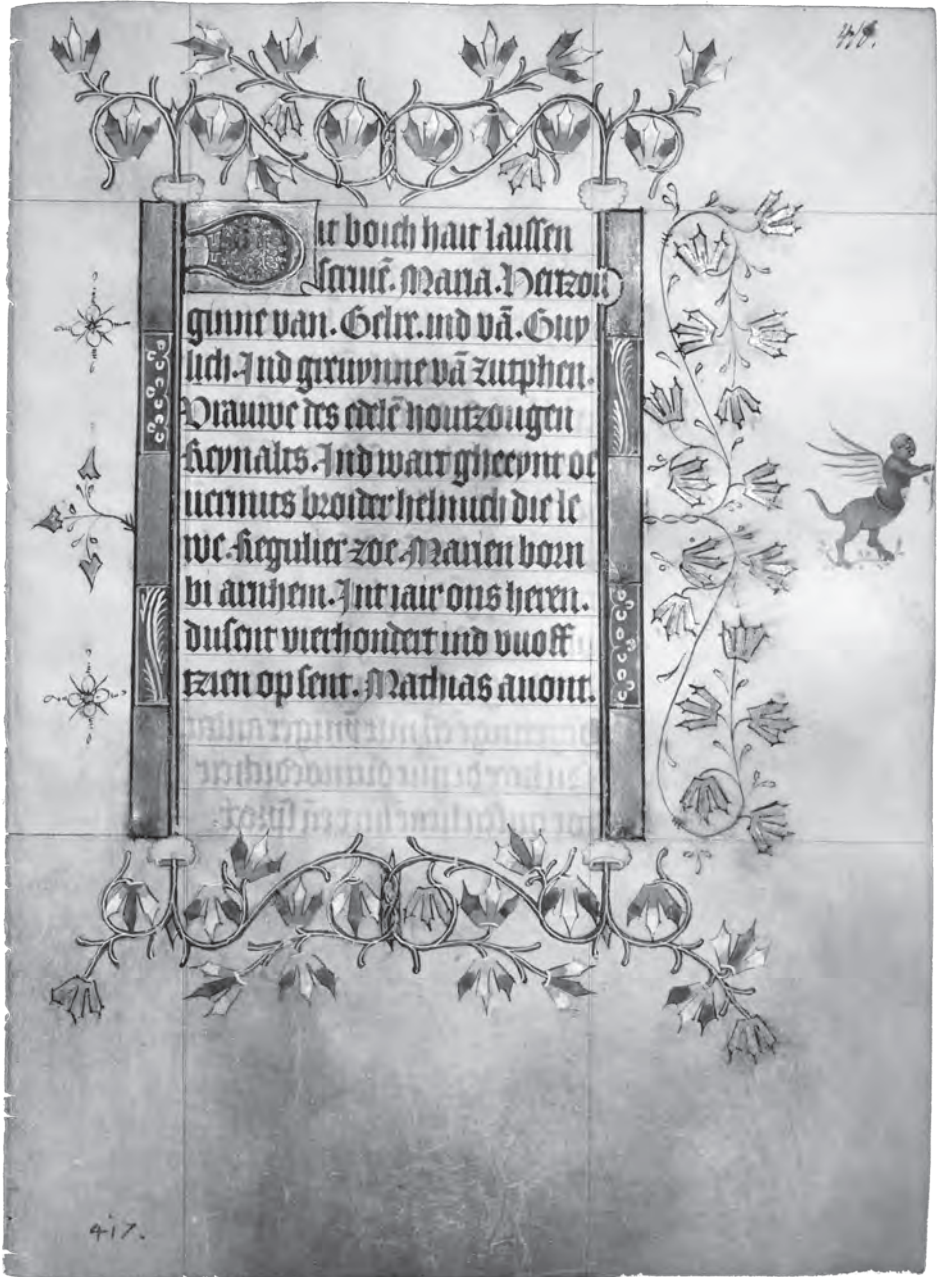 Dit boich hait laissen
scriuē. Maria. Hertzou
ginne van. Gelre. ind vā. Guy
lich. Ind greuynne vā zutphen.
Vrauwe des edelē hoirtzougen
Reynalts. Ind wart gheeynt oe
uermits broider helmich die le
we. Regulier zoe. Marien born
bi arnhem. Int iair ons heren.
dusent vierhondert ind vuoff
tzien op sent. Mathias auont.
417.